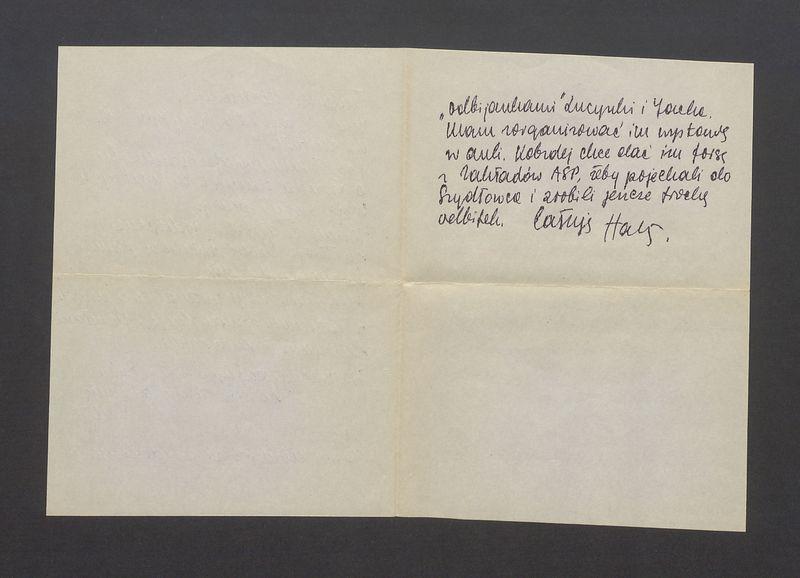 „odbijankami" Lucynki i Jacka.
Mam zorganizować im wystawę
w auli. Kobzdej chce dać im forsę
z Zakładów ASP, żeby pojechali do
Szydłowca i zrobili jeszcze trochę
odbitek. Całuję